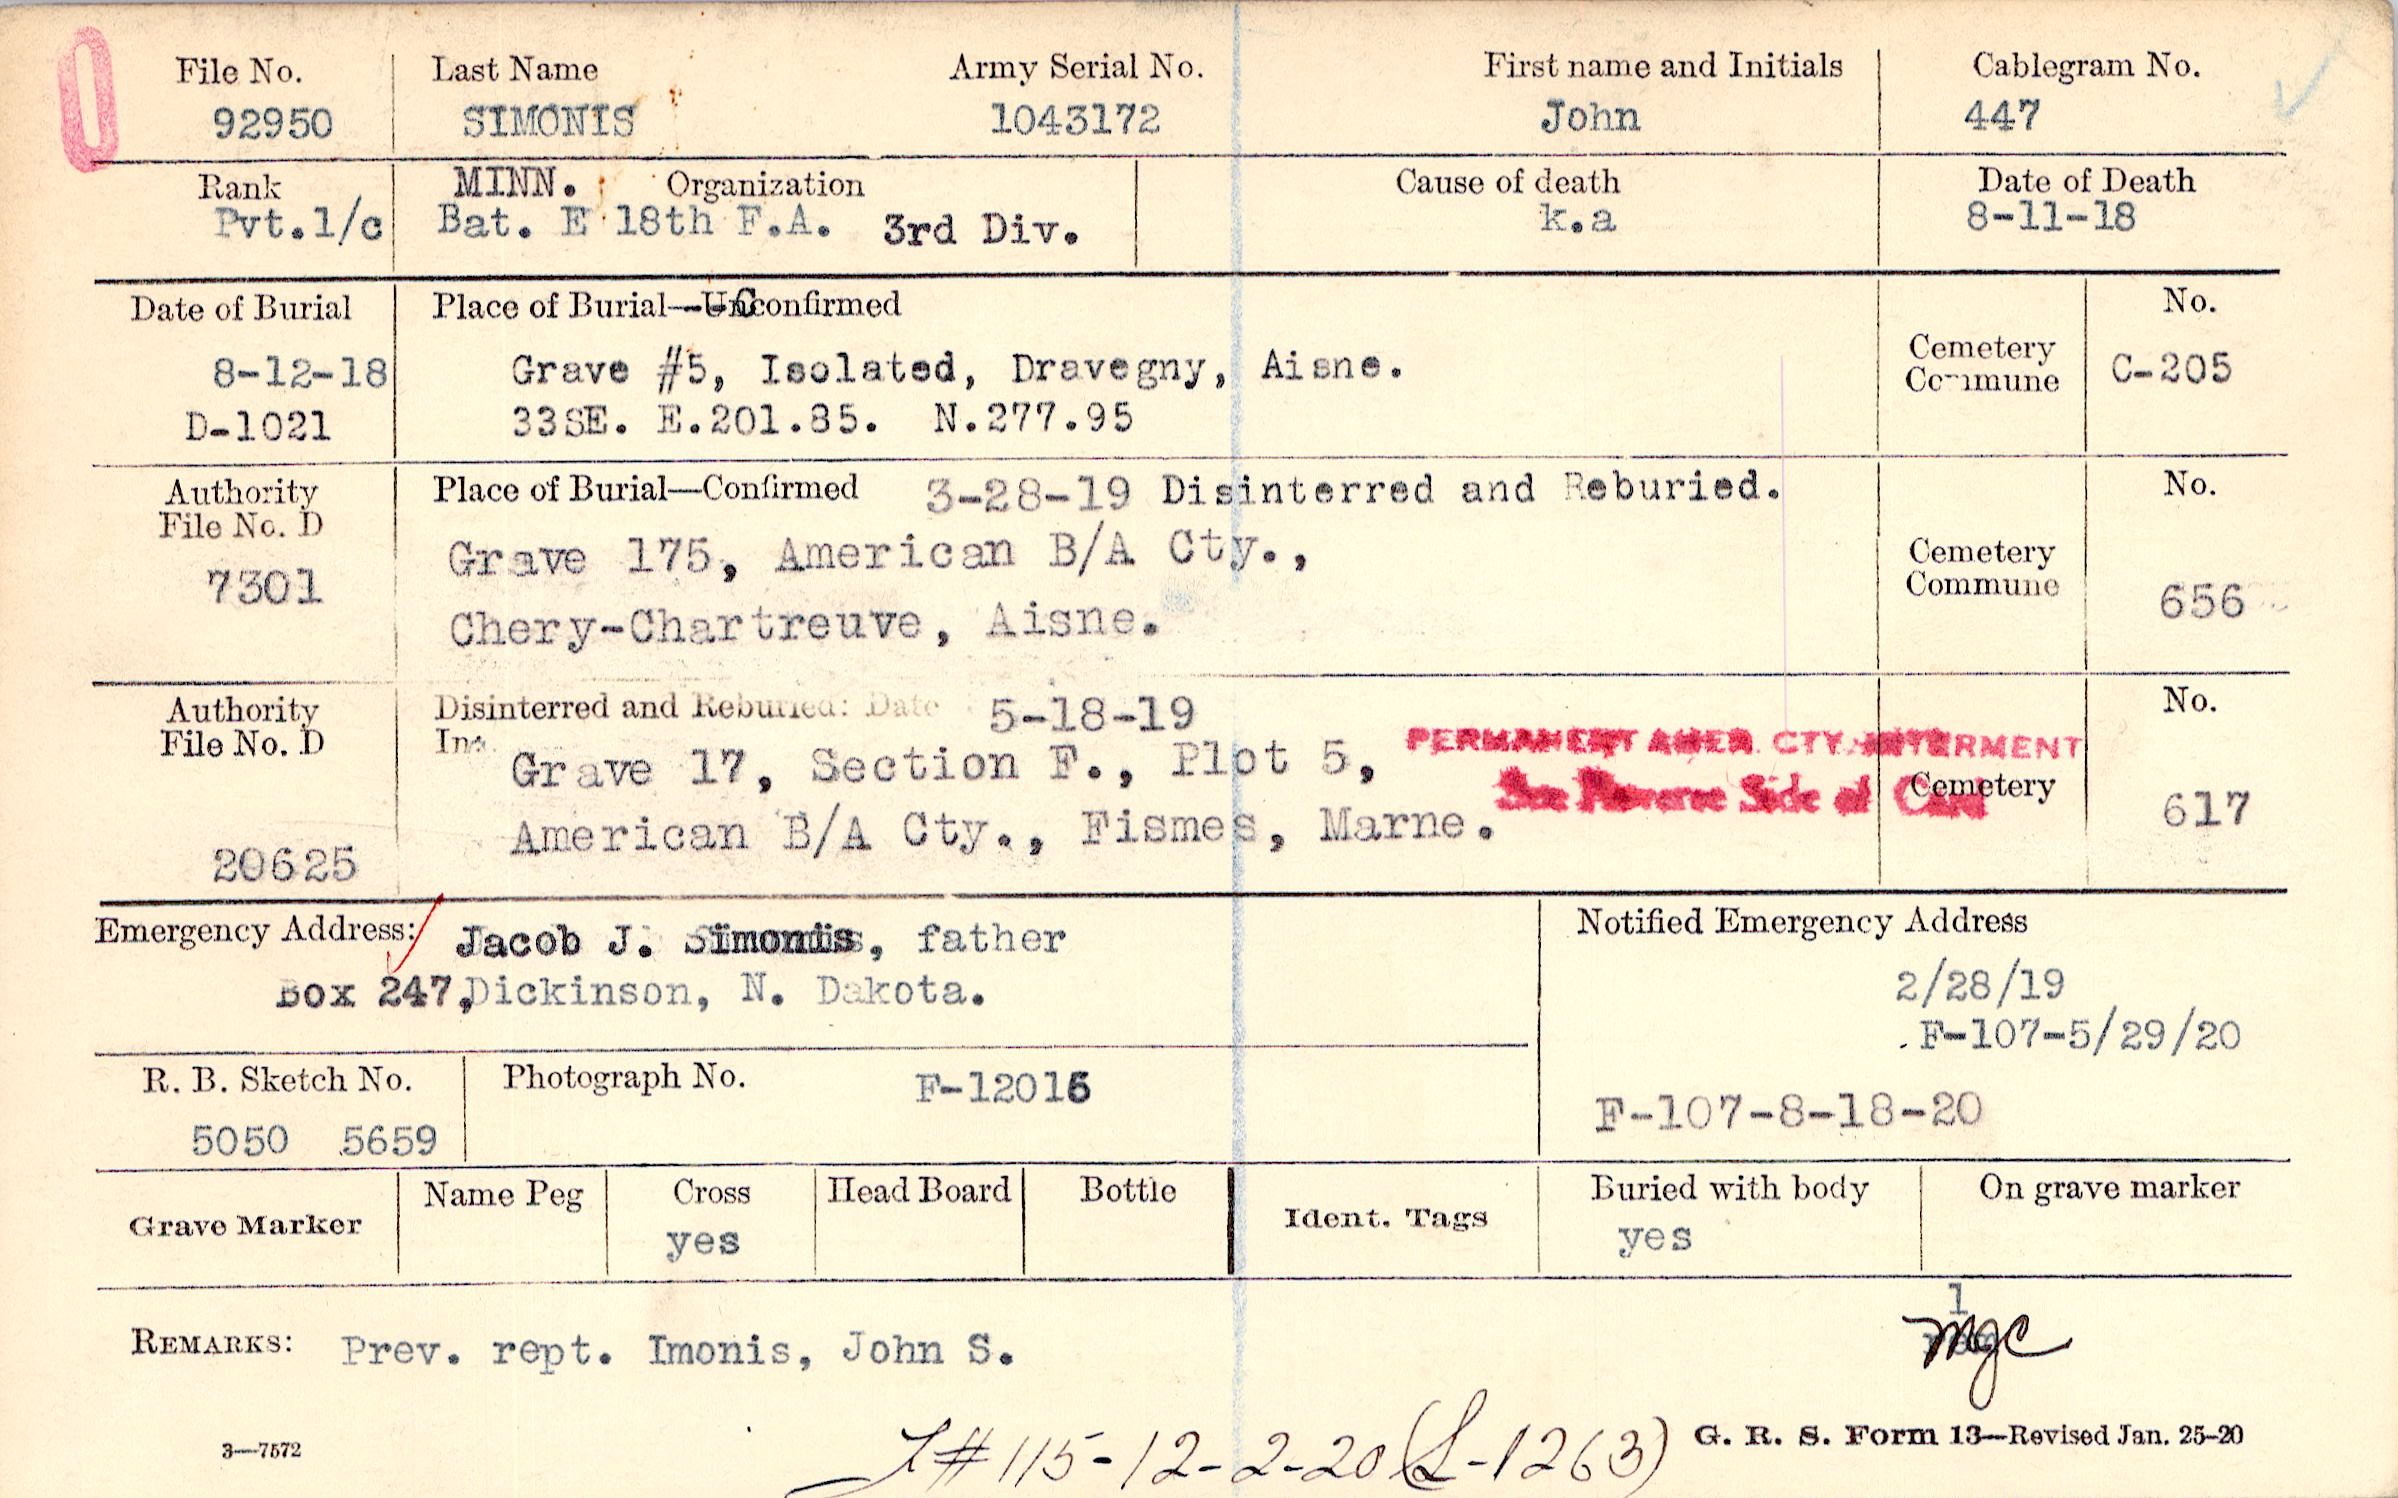 File No. Last Name Army Serial No. First name and Initials Cablegram No.
92950 SIMONIS 1043172 John 447
Rank MINN. Organization Cause of death Date of Death
Pvt.1/c Bat. E 18th F.A. 3rd Div. k.a 8-11-18
Date of Burial Place of Burial—Confirmed No.
8-12-18 Grave #5, Isolated, Dravegny, Aisne. Cemetery Commune C-205
D-1021 33SE. E.201.85. N.277.95
Authority Place of Burial—Confirmed 3-28-19 Disinterred and Reburied. No.
File No. D Grave 175, American B/A Cty., Cemetery
7301 Chery-Chartreuve, Aisne. Commune 656
Authority Disinterred and Reburied: Date 5-18-19 No.
File No. D In: Grave 17, Section F., Plot 5, PERMANENT AMER. CTY. INTERMENT
See Reverse Side of Card Cemetery 617
20625 American B/A Cty., Fismes, Marne.
Emergency Address: Jacob J. Simonis, father Notified Emergency Address
Box 247, Dickinson, N. Dakota. 2/28/19
F-107-5/29/20
R. B. Sketch No. Photograph No. F-12016
5050 5659 F-107-8-18-20
Grave Marker Name Peg Cross Head Board Bottle Ident. Tags Buried with body On grave marker
yes yes
1
REMARKS: Prev. rept. Imonis, John S. mgc
3—7572 #115-12-2-20 (L-1263) G. R. S. Form 13—Revised Jan. 25-20